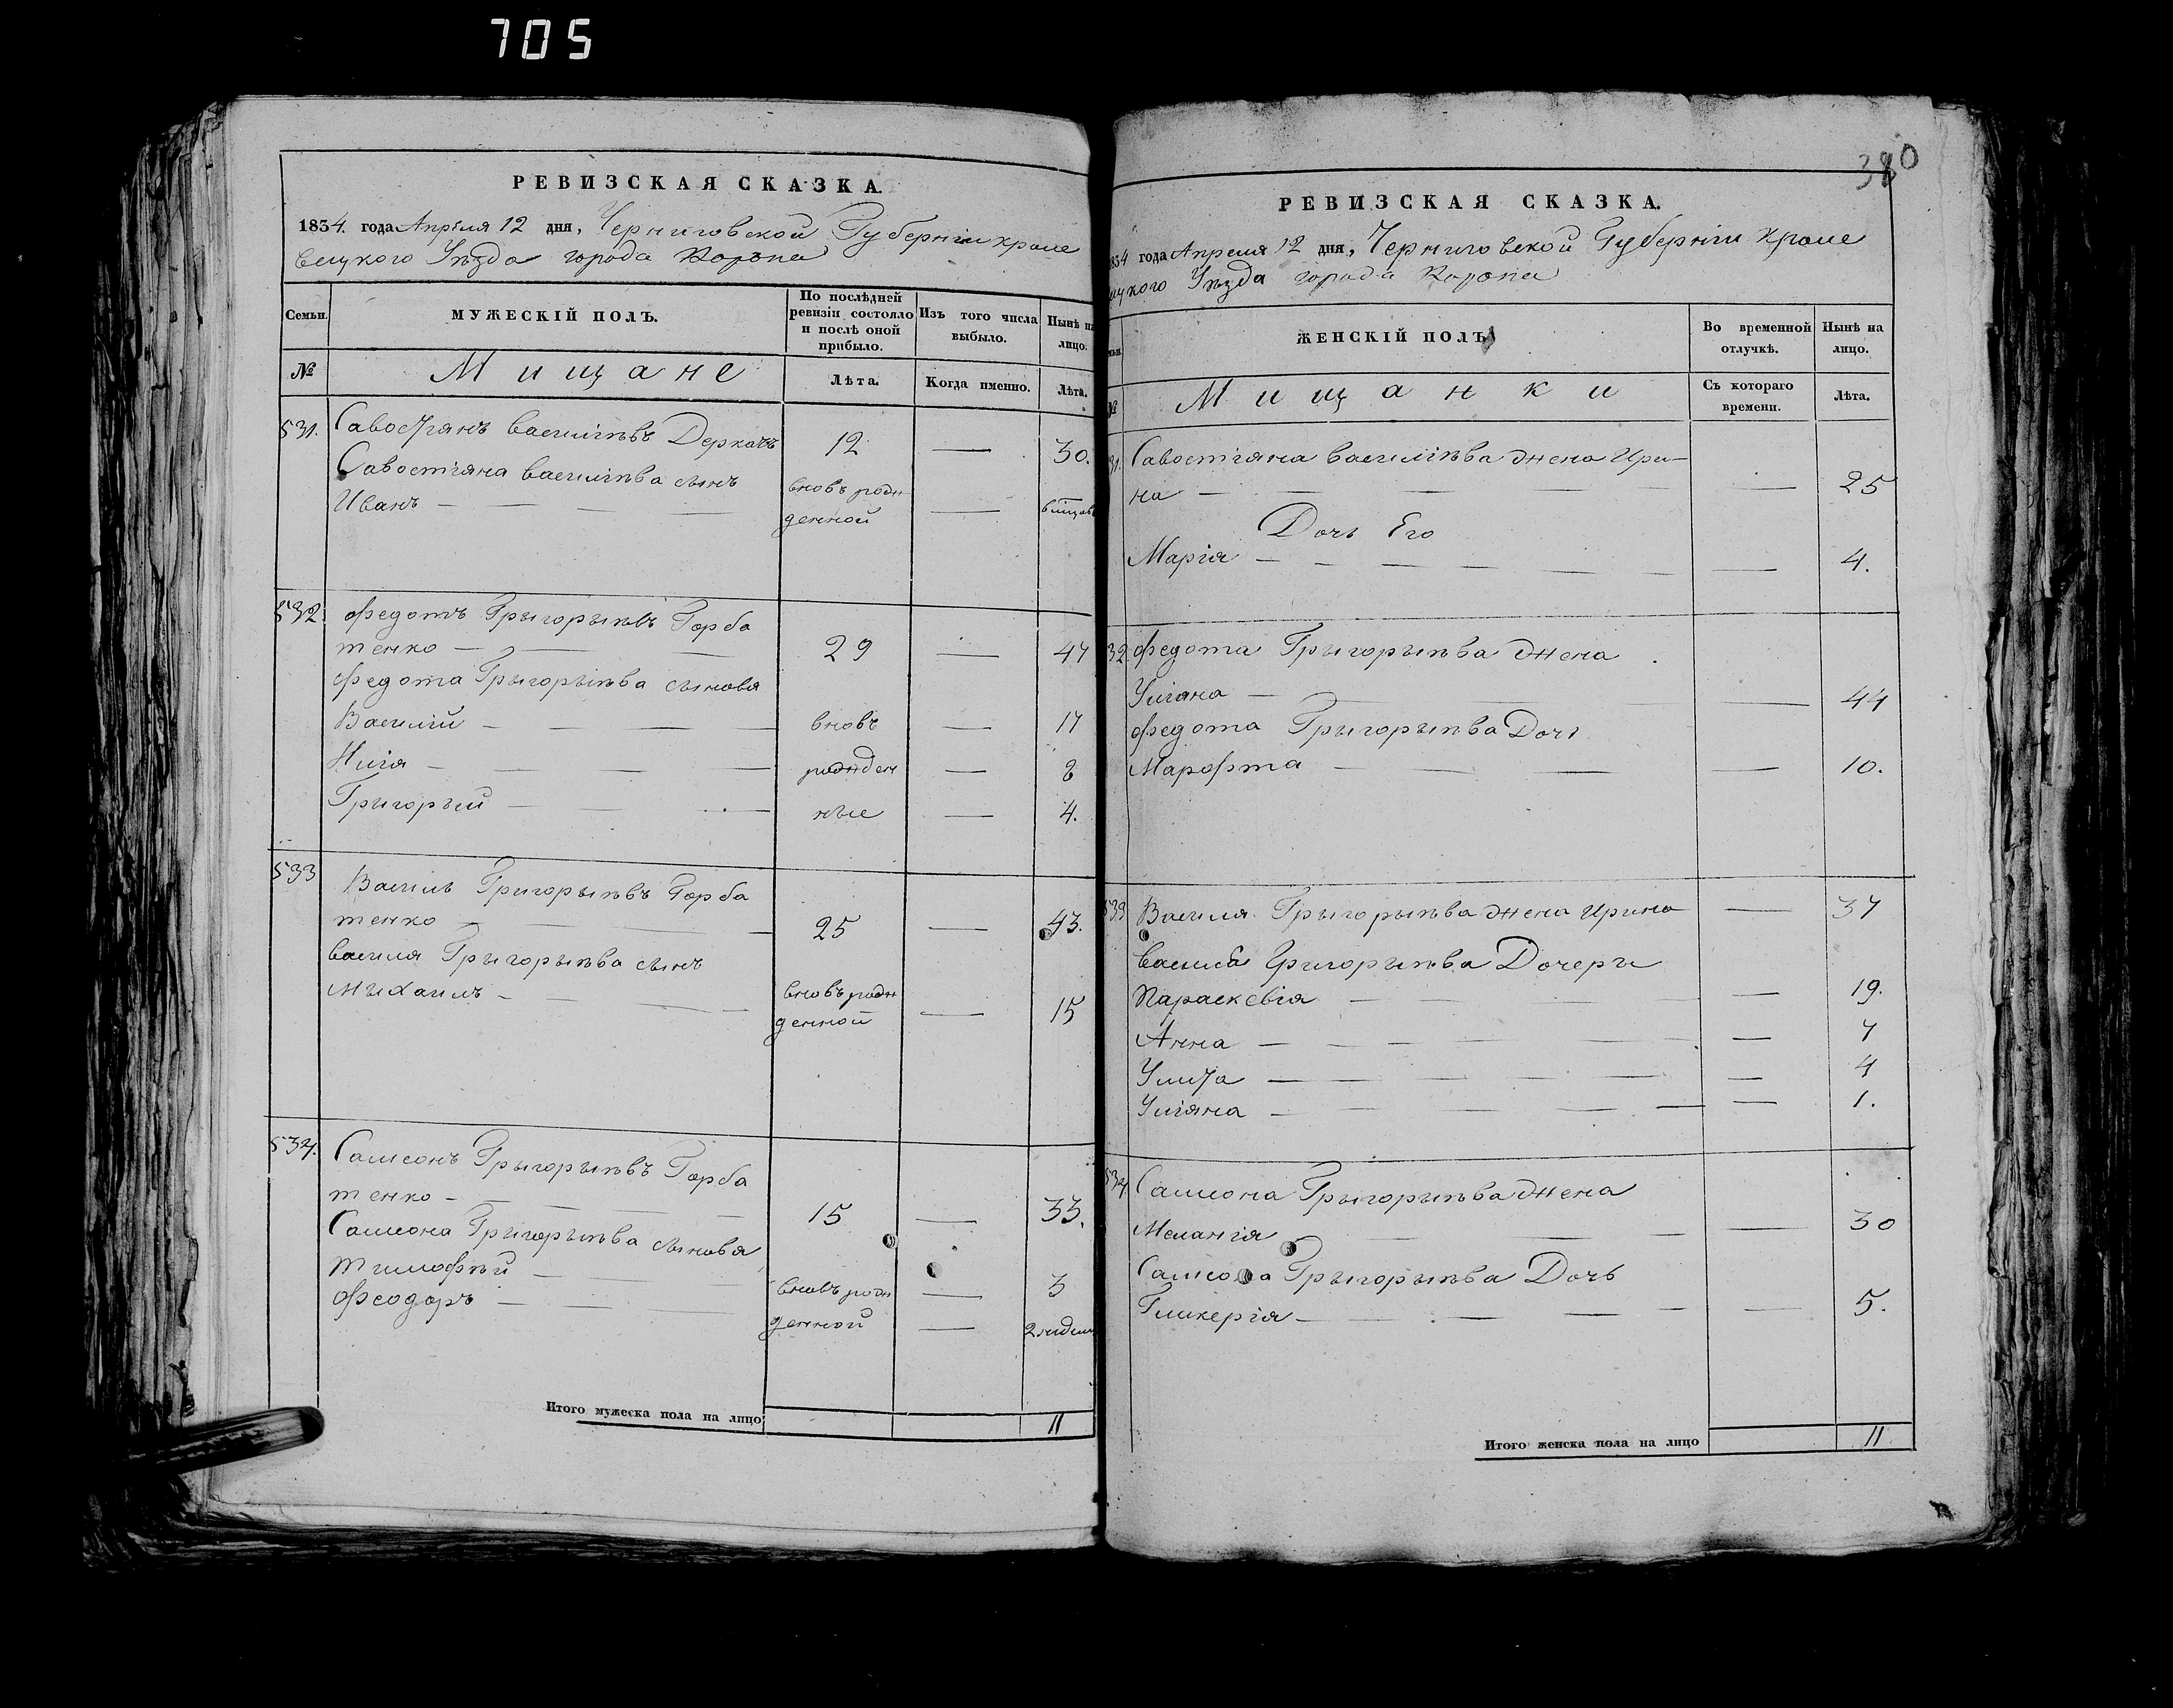 705
РЕВИЗСКАЯ СКАЗКА.
1834. года Апреля 12 дня, Черниговской Губернiи Кроле
вецкого Уѣзда города Коропа
Семьи.
МУЖЕСКIЙ ПОЛЪ.
По послѣдней ревизiи состояло и послѣ оной прибыло.
Изъ того числа выбыло.
Нынѣ на лицо.
№
Мищане
Лѣта.
Когда именно.
Лѣта.
531. Савостянъ Василiѣвъ Деркачъ 12 — 30.
Савостiяна Василiѣва сынъ
Иванъ — вновь рожденной —
532 Федотъ Грыгорыѣвъ Горба
тенко — 29 — 47
Федота Грыгорыѣва сыновя
Василiй — вновь — 17
Илiя — рожден — 8
Григорый — ные — 4.
533 Василь Григорыѣвъ Горба
тенко — 25 — 43.
Василя Грыгорыѣва сынъ
Мыхаилъ — вновь рожденной — 15
534. Самсонъ Грыгорыѣвъ Горба
тенко — 15 — 33.
Самсона Грыгорыѣва сыновя
Тимофѣй — вновь рож — 3
Феодоръ — денной — 2 нидели
Итого мужеска пола на лицо 11
380
РЕВИЗСКАЯ СКАЗКА.
1834 года Апреля 12 дня, Черниговской Губернiи Кроле
вецкого Уѣзда города Коропа
ЖЕНСКIЙ ПОЛЪ
Во временной отлучкѣ.
Нынѣ на лицо.
№
Мищанки
Съ котораго времени.
Лѣта.
31. Савостiяна Василiѣва жена Ири-
на — — 25
Дочь Его
Марiя — — 4.
32 Федота Грыгорыѣва жена
Улiяна — — 44
Федота Грыгорыѣва Дочь
Марофта — — 10.
533 Василя Грыгорыѣва жена Ирина — 37
Василя Григорыѣва Дочеры
Параскевiя — — 19.
Анна — — 7
Улита — — 4
Улiяна — — 1.
534 Самсона Грыгорыѣва жена
Меланiя — — 30
Самсона Грыгорыѣва Дочь
Гликерiя — — 5.
Итого женска пола на лицо 11